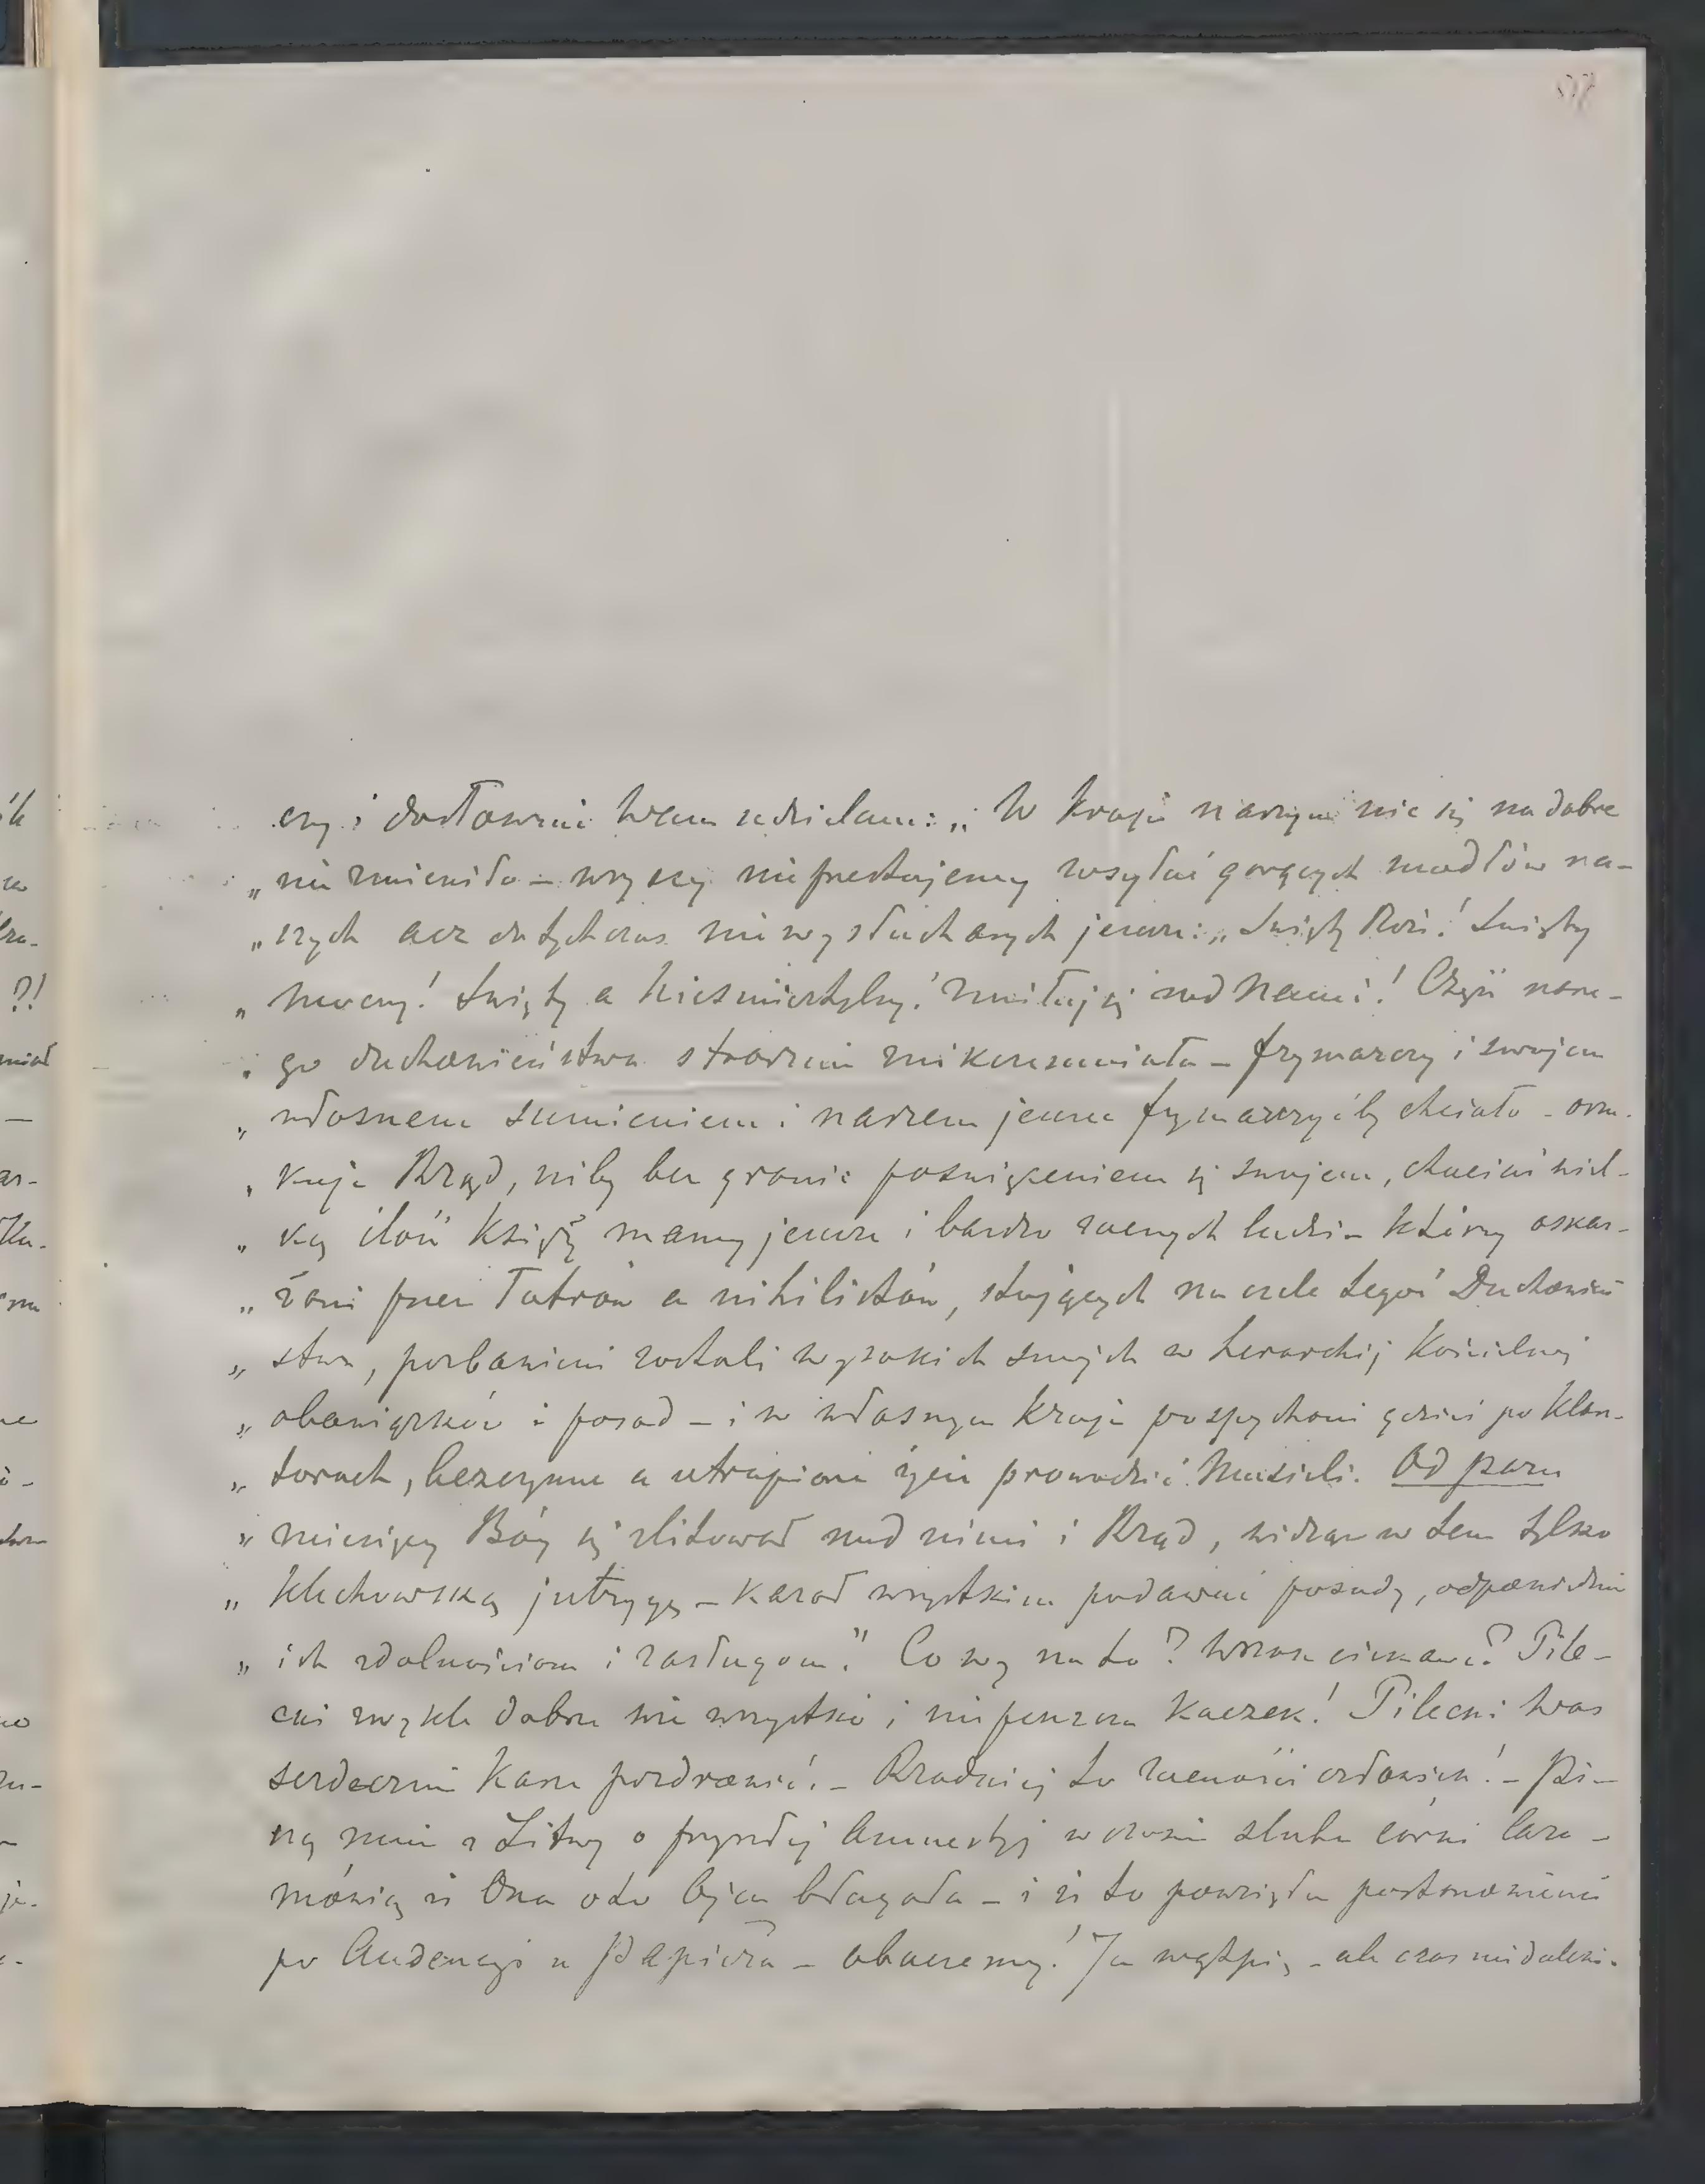 czy i dosłownie Wam udzielam: „W Kraju naszym nic się na dobre
„nie zmieniło – wszyscy nieprzestajemy wsyłać gorących modłów na-
„szych acz dotychczas niewysłuchanych jeszcze: „Święty Boże! Święty
„mocny! Święty a Nieśmiertelny! zmiłuj się nad Nami! Część nasze-
„go duchowieństwa strasznie – frymarczy i swojem
„własnem sumieniem i naszem jeszcze frymarczyćby chciało – oszu-
„kuje Rząd, niby bez granic poświęceniem się swojem, chociaż wiel-
„ką ilość Księży mamy jeszcze i bardzo zacnych ludzi – którzy oskar-
„żeni przez Łotrów a nihilistów, stojących na czele tegoż Duchowień-
„stwa, pozbawieni zostali wysokich swych w herarchij Kościelnej
„obowiązków i posad – i w własnym Kraju pospychani gdzieś po Klasz-
„torach, bezczynne a utrapione życie prowadzić Musieli. Od paru
„miesięcy Bóg się zlitował nad nimi i Rząd, widząc w tem tylko
„klechowską intrygę – Kazał wszystkim podawać posady, odpowiednie
„ich zdolnościom i zasługom." Co wy na to? Wszak ciekawe? Pile-
cki zwykle dobrze wie wszystko i nie puszcza Kaczek! Pilecki Was
serdecznie Każe pozdrowić. – Rzadkiej to zacności człowiek! – Pi-
szą mnie z Litwy o przyszłej Amnestyj w czasie ślubu córki Cara –
mówią iż Ona oto Ojca błagała – i iż to powzięła postanowienie
po Audencyi u Papieża – obaczemy! Ja wątpię – ale czas niedaleki.